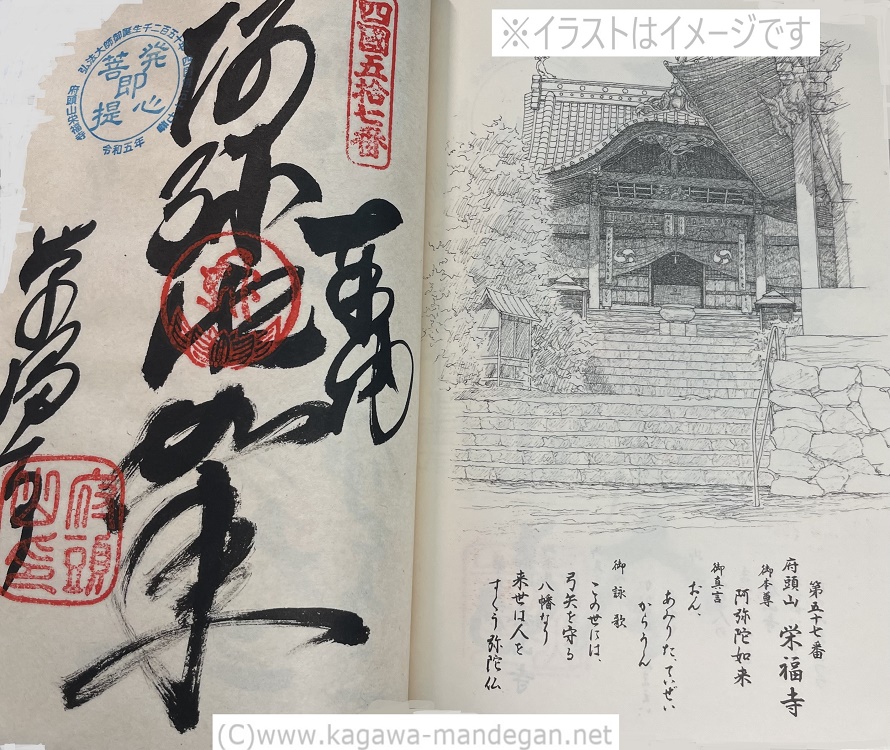 ※イラストはイメージです
四國五拾七番
奉納
阿弥陀如来
栄福寺
弘法大師御誕生千二百五十年
発即心
菩提
府頭山栄福寺
令和五年
府頭
山印
第五十七番
府頭山 栄福寺
御本尊
阿弥陀如来
御真言
おん、
あみりた、ていぜい
からうん
御詠歌
この世には、
弓矢を守る
八幡なり
来世は人を
すくう弥陀仏
(C)www.kagawa-mandegan.net